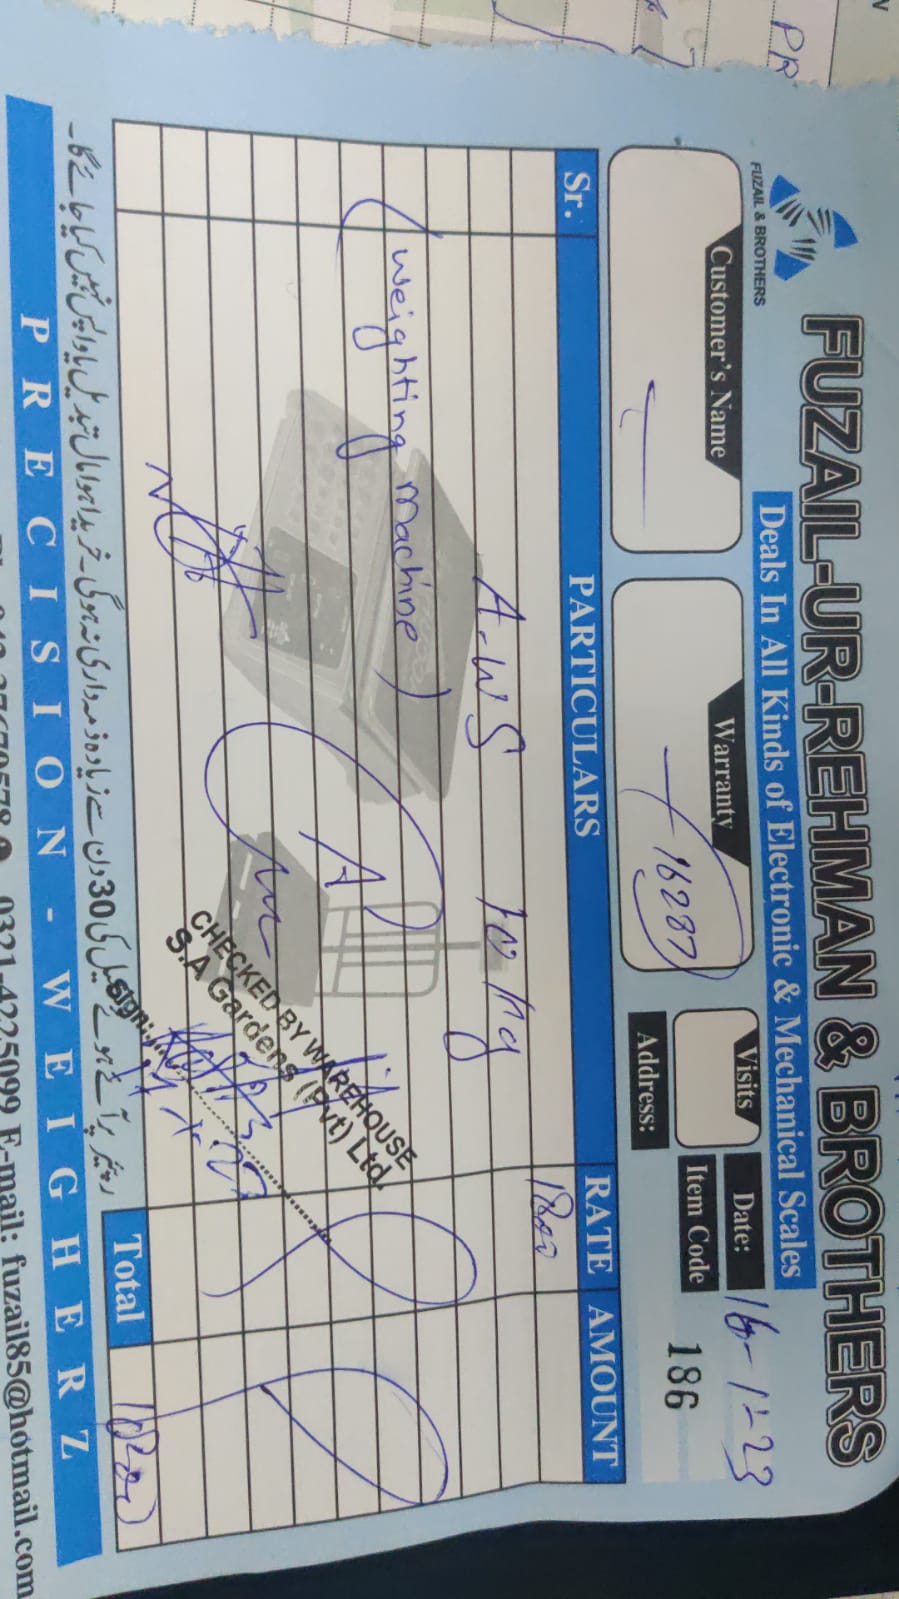 FUZAIL-UR-REHMAN & BROTHERS
FUZAIL & BROTHERS
Deals In All Kinds of Electronic & Mechanical Scales
Customer's Name
Warranty
16287
Visits
Date: 16-1-23
Item Code 186
Address:
Sr. PARTICULARS RATE AMOUNT
1800
A.WS 10 kg
(Weighting Machine)
CHECKED BY WAREHOUSE
S.A Gardens (Pvt) Ltd.
Sign:
Total 1800
رپئیر پر آئے ہوئے سکیل کی 30 دن سے زیادہ ذمہ داری نہ ہوگی۔ خریدا ہوا مال تبدیل یا واپس نہیں کیا جائے گا۔
PRECISION - WEIGHERZ
0321-4225099 E-mail: fuzail85@hotmail.com
PR